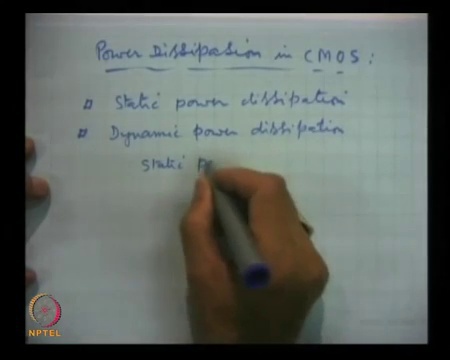 Power Dissipation in CMOS:
Static power dissipation
Dynamic power dissipation
Static P
NPTEL